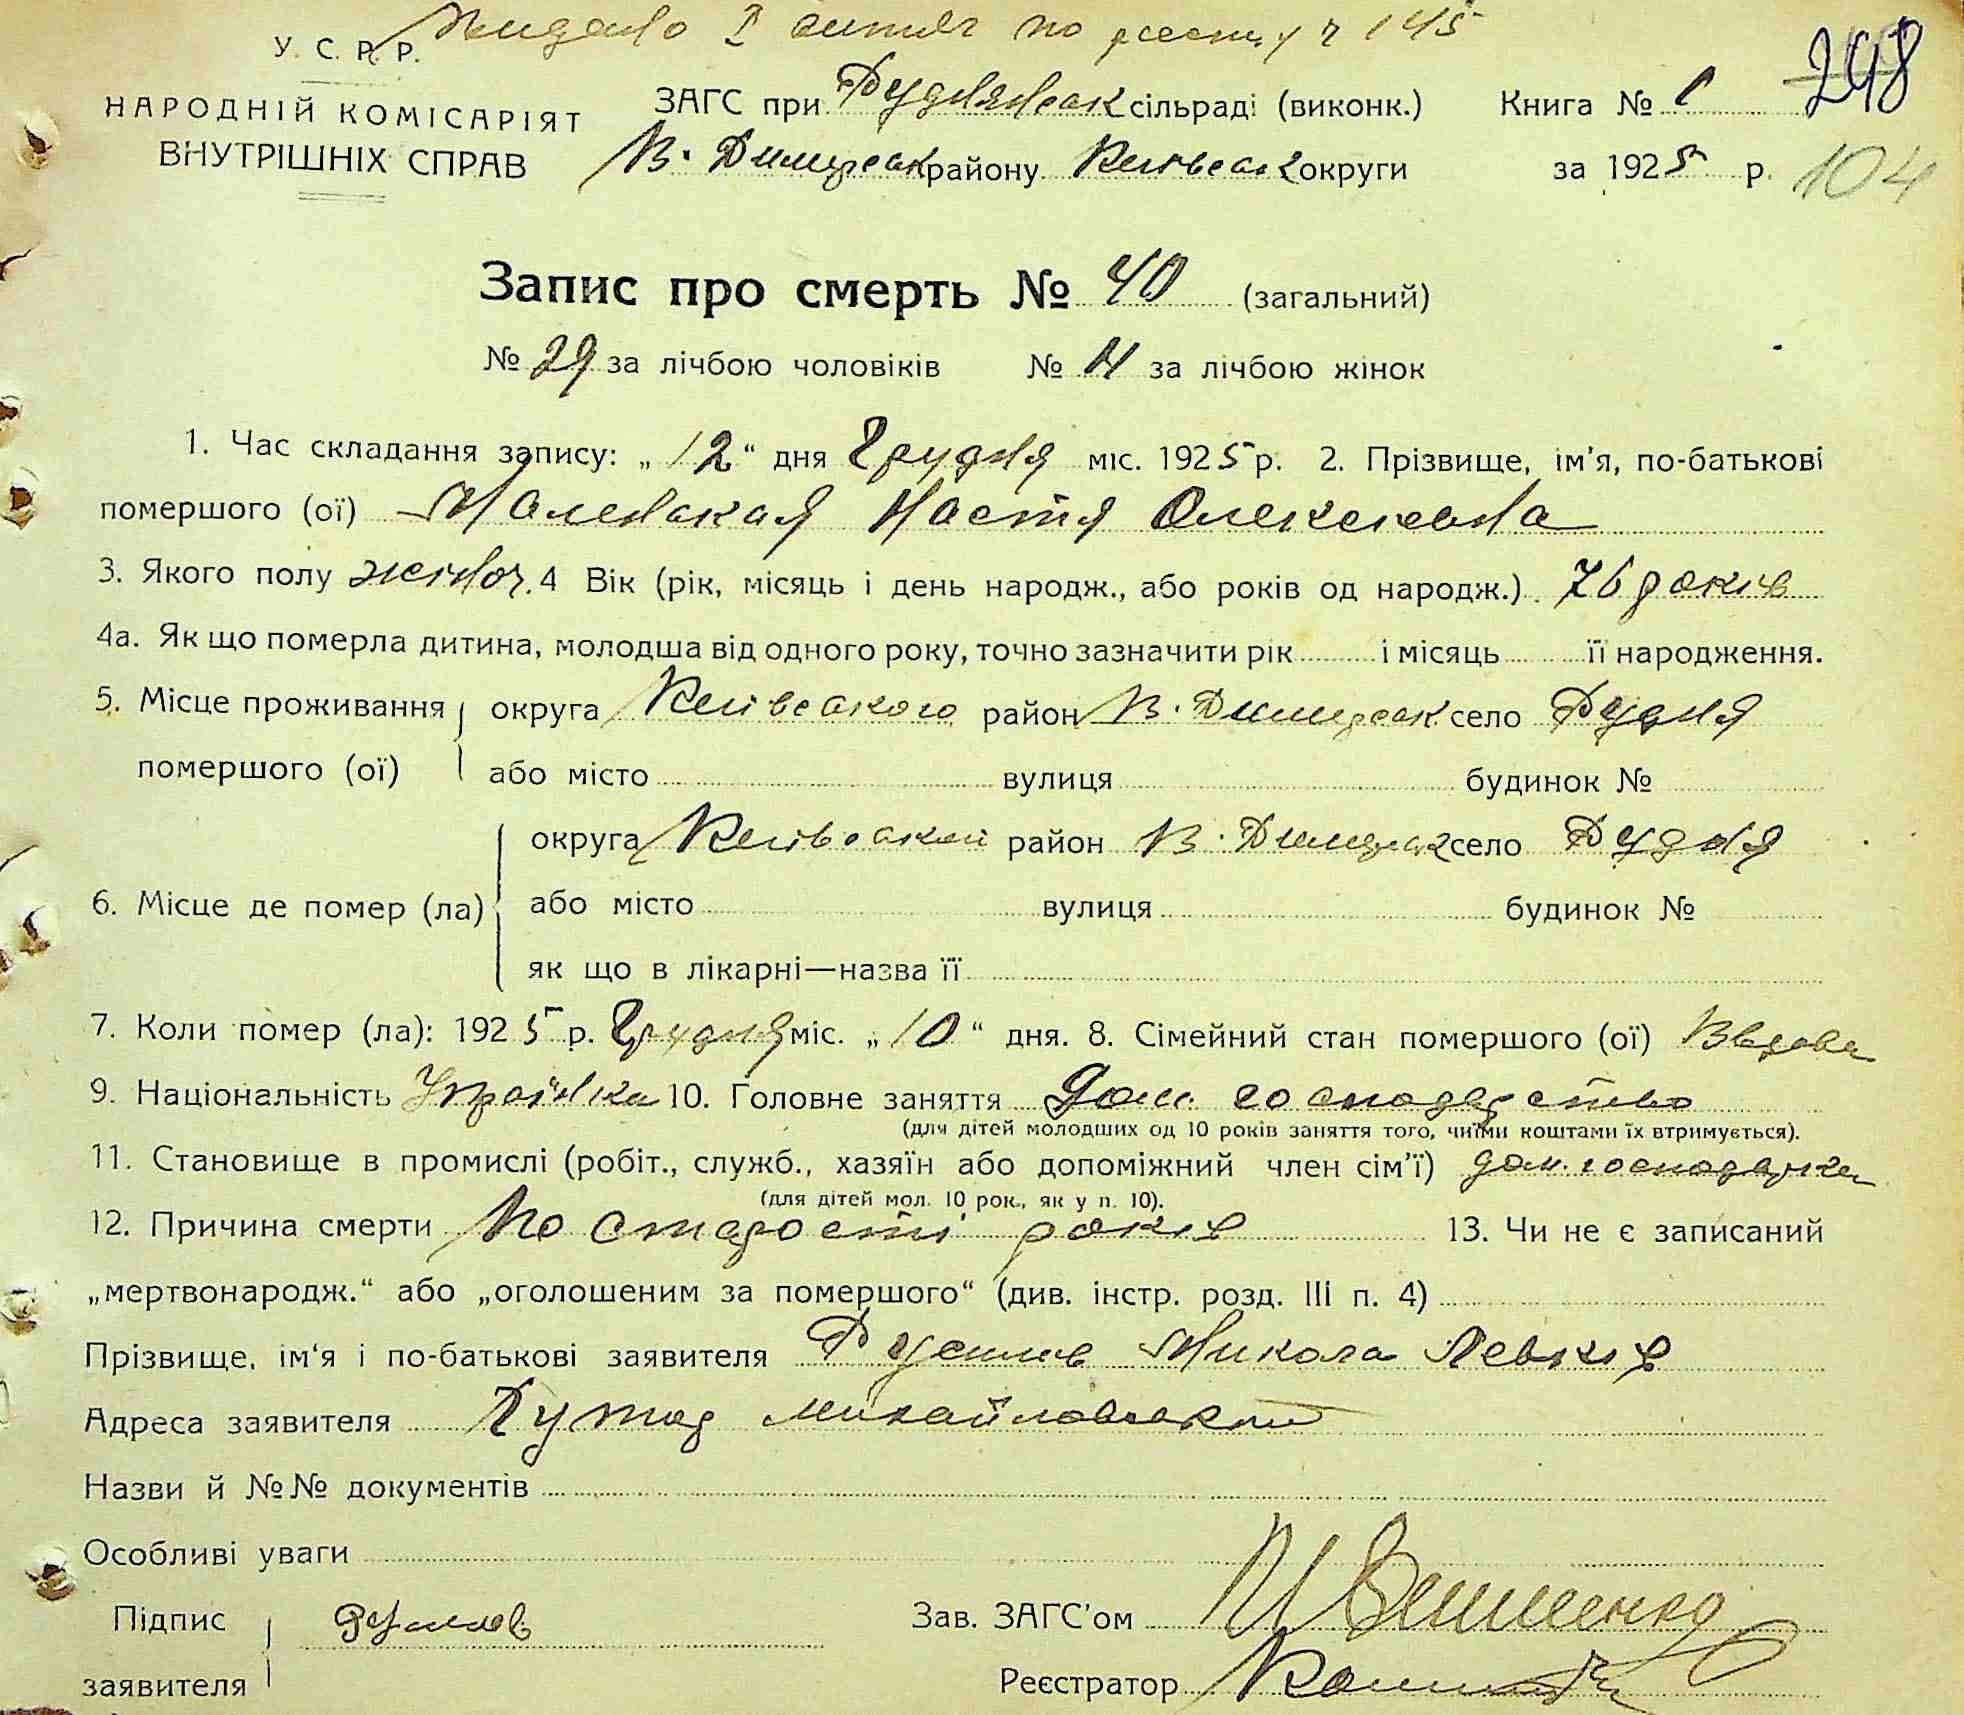 Видано І витяг по реєстру ч 145
У. С. Р. Р.
НАРОДНІЙ КОМІСАРІЯТ
ВНУТРІШНІХ СПРАВ
ЗАГС приРуднянськ сільраді (виконк.)
В. Димерськ району Київськ округи
Книга № 1
за 1925 р.
248
104
Запис про смерть № 40 (загальний)
№ 29 за лічбою чоловіків № 11 за лічбою жінок
1. Час складання запису: „12“ дня Грудня міс. 1925 р. 2. Прізвище, ім'я, по-батькові
помершого (ої) Маленская Настя Олексієвна
3. Якого полу жіноч. 4 Вік (рік, місяць і день народж., або років од народж.) 76 років
4а. Як що померла дитина, молодша від одного року, точно зазначити рік і місяць її народження.
5. Місце проживання округа Київського район В. Димерськ село Рудня
помершого (ої) або місто вулиця будинок №
округа Київський район В. Димерськ село Рудня
6. Місце де помер (ла) або місто вулиця будинок №
як що в лікарні—назва її
7. Коли помер (ла): 1925 р. Грудня міс. „10“ дня. 8. Сімейний стан помершого (ої) Вдова
9. Національність Українка 10. Головне заняття Дом. господарство
(для дітей молодших од 10 років заняття того, чиїми коштами їх втримується).
11. Становище в промислі (робіт., служб., хазяїн або допоміжний член сім'ї) дом. господарка
(для дітей мол. 10 рок., як у п. 10).
12. Причина смерти По старості років 13. Чи не є записаний
„мертвонародж.“ або „оголошеним за помершого“ (див. інстр. розд. III п. 4)
Прізвище, ім'я і по-батькові заявителя Микола Левків
Адреса заявителя Хутор Михайловський
Назви й №№ документів
Особливі уваги
Підпис
заявителя
Зав. ЗАГС'ом
Реєстратор